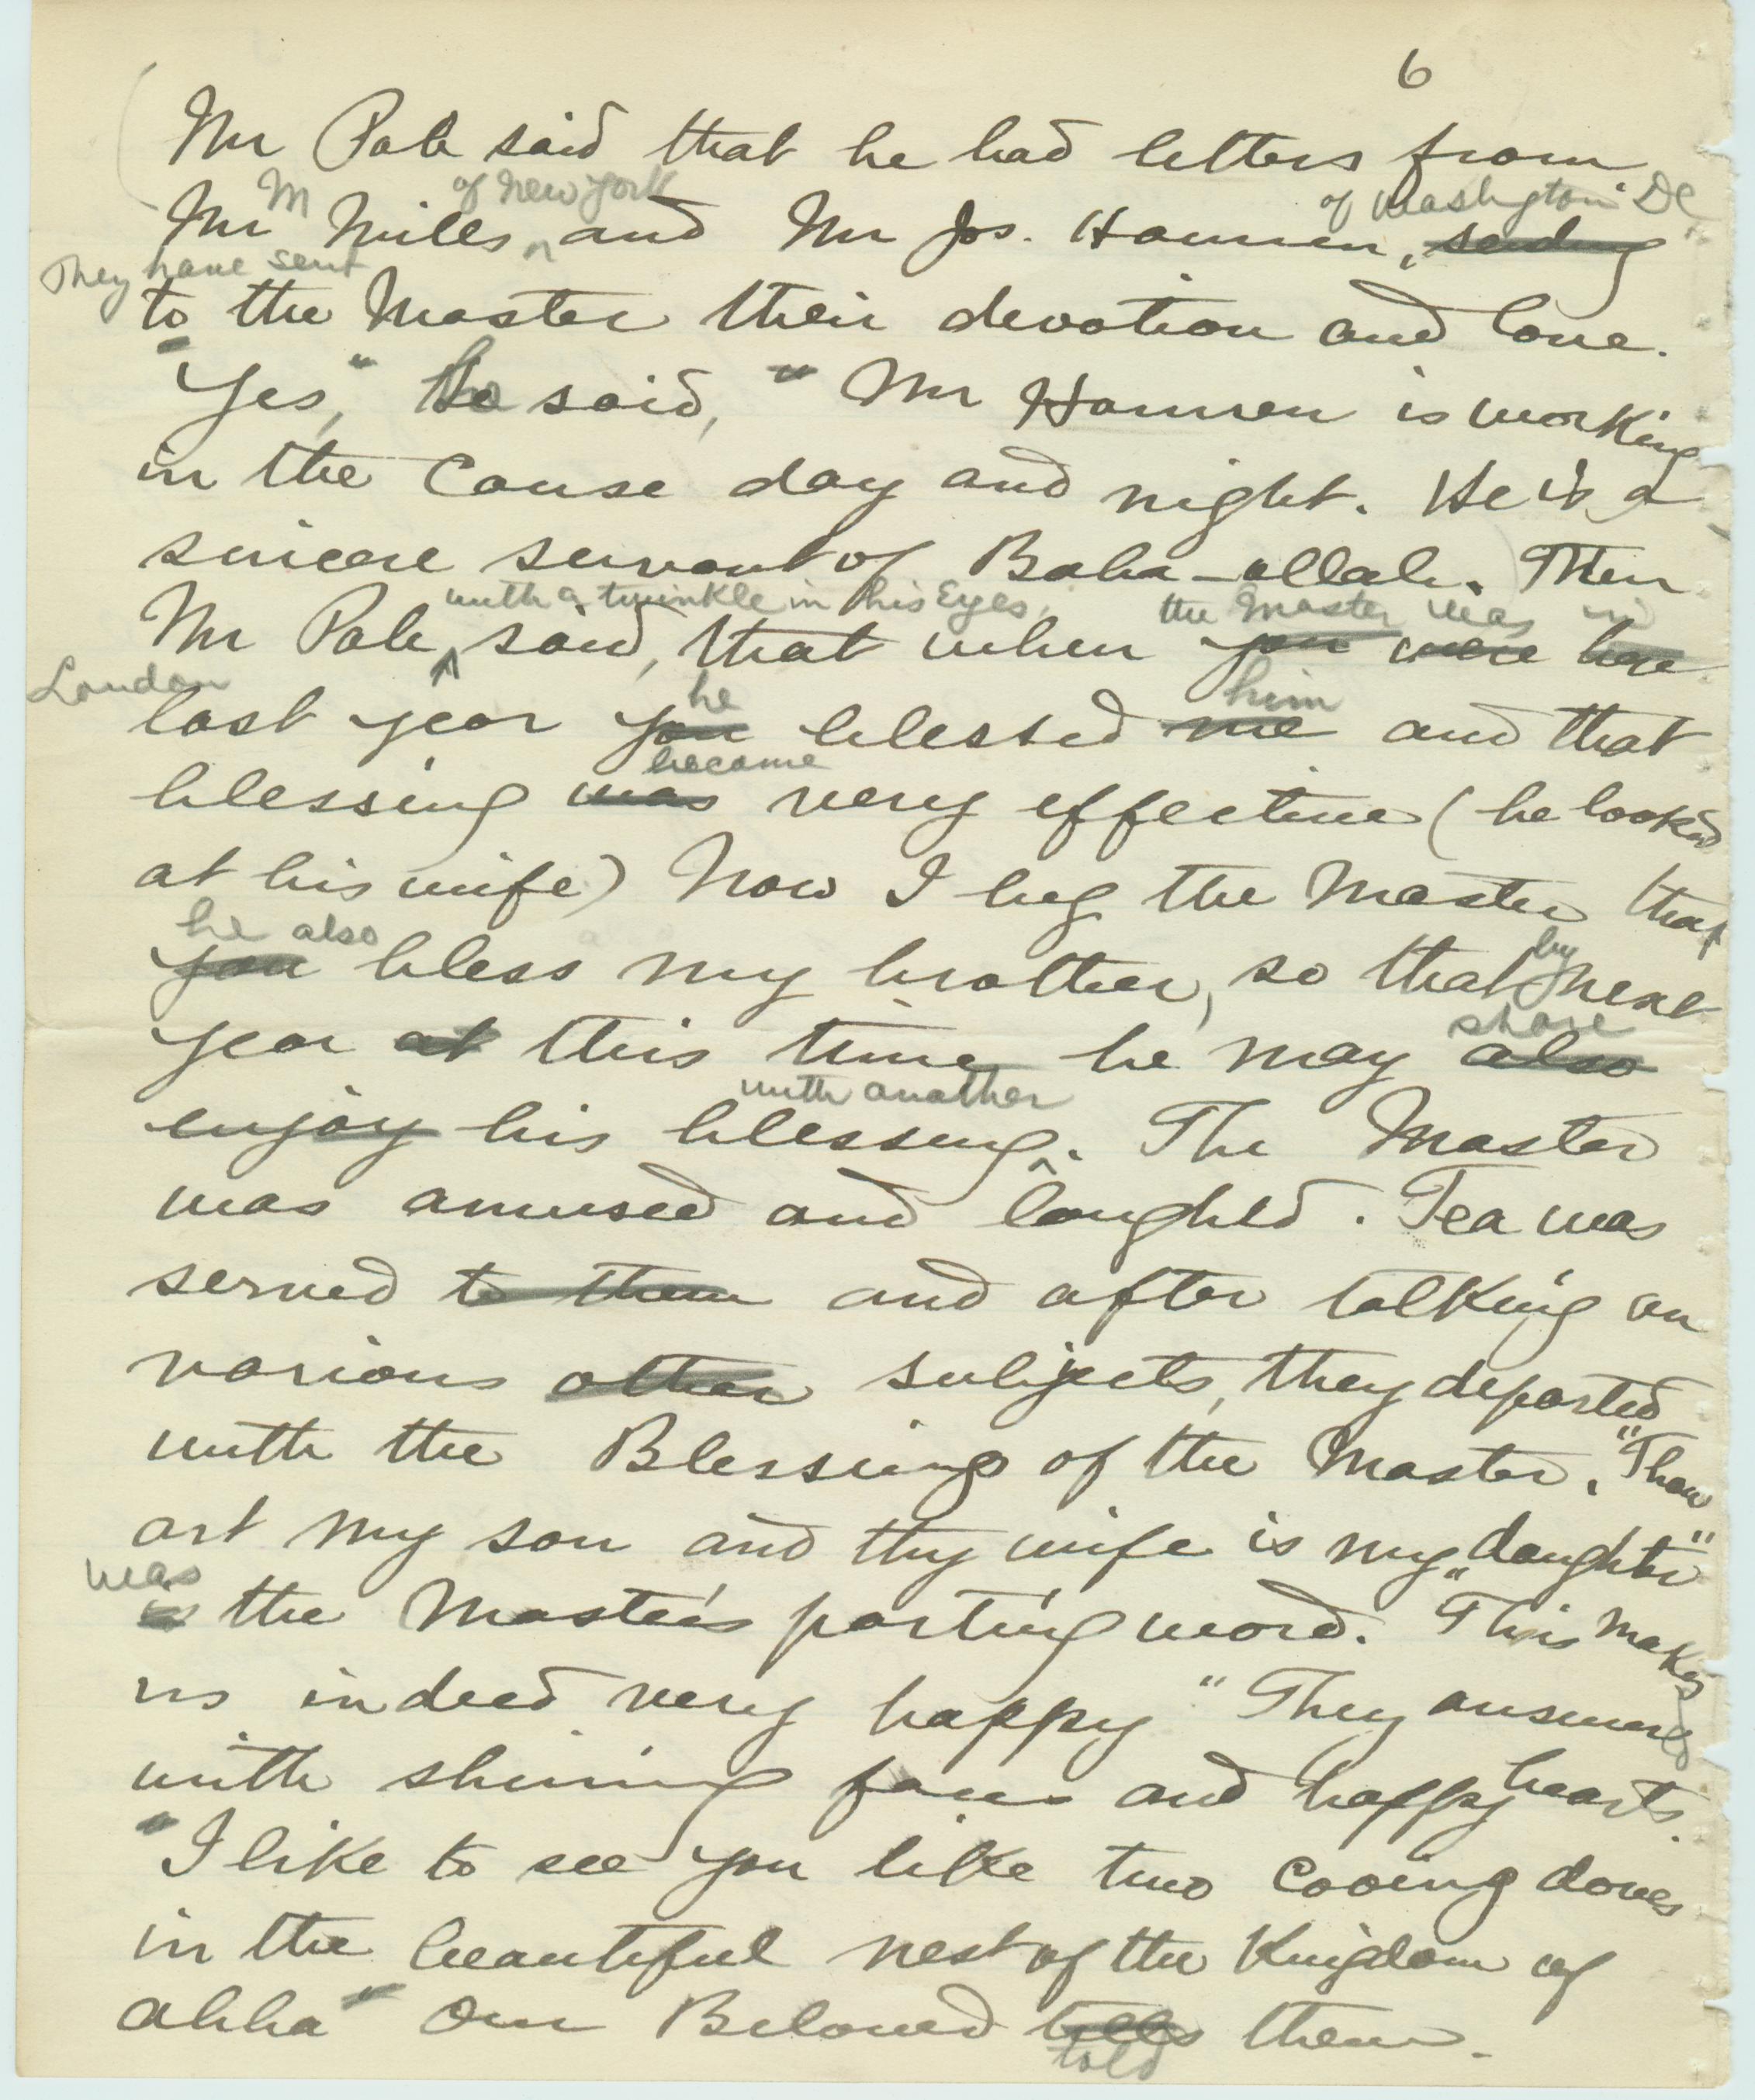 6
Mr Pole said that he had letters from
M of New York of Washington DC
Mr Mills, and Mr Jos. Hannen, sending
They have sent
to the Master their devotion and love.
"Yes," He said, "Mr Hannen is working
in the Cause day and night. He is a
sincere servant of Baha-ollah. Then
with a twinkle in his Eyes, the Master was in
Mr Pole, said, that when you were here
London he him
last year you blessed me and that
became
blessing was very effective (he looked
at his wife) Now I beg the Master that
he also by
you bless my brother, so that next
share
year at this time he may also
with another
enjoy his blessing. The Master
was amused and laughed. Tea was
served to them and after talking on
various other subjects, they departed
with the Blessings of the Master. "Thou
art my son and thy wife is my daughter"
was
is the Master's parting word. "This makes
us indeed very happy" They answered
with shining faces and happy hearts.
"I like to see you like two cooing doves
in the beautiful nest of the Kingdom of
Abha" Our Beloved tells them.
told